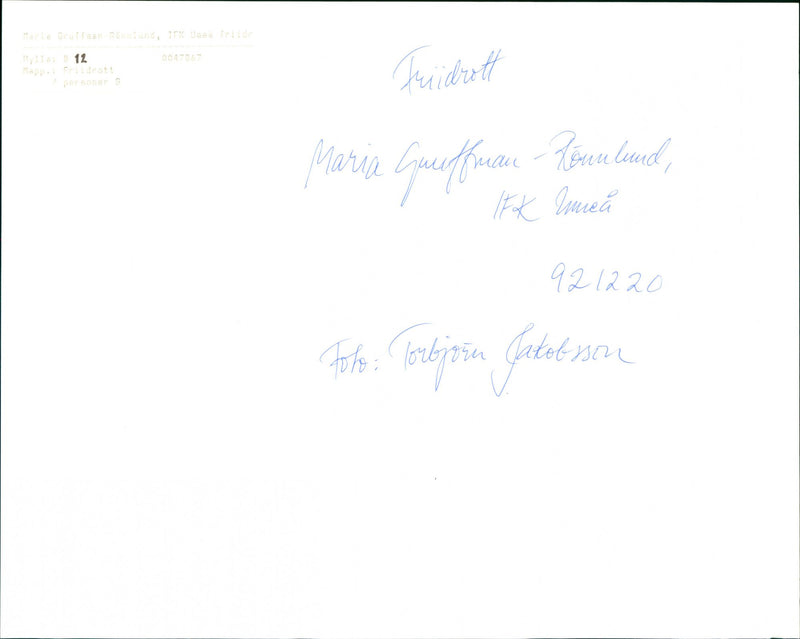 Maria Gruffman-Rönnlund, IFK Umeå Friidr
Hylla: 8 12 0047067
Mapp.: Friidrott
/ personer G
Friidrott
Maria Gruffman - Rönnlund,
IFK Umeå
921220
Foto: Torbjörn Jakobsson